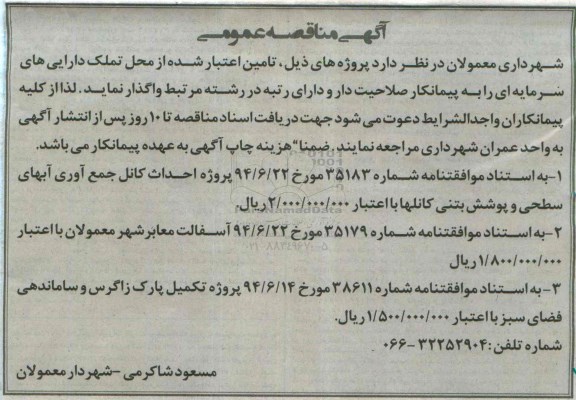 آگهی مناقصه عمومی
شهرداری معمولان در نظر دارد پروژه های ذیل، تامین اعتبار شده از محل تملک دارایی های
سرمایه ای را به پیمانکار صلاحیت دار و دارای رتبه در رشته مرتبط واگذار نماید. لذا از کلیه
پیمانکاران واجدالشرایط دعوت می شود جهت دریافت اسناد مناقصه تا ۱۰ روز پس از انتشار آگهی
به واحد عمران شهرداری مراجعه نمایند, ضمنا" هزینه چاپ آگهی به عهده پیمانکار می باشد.
۱-به استناد موافقتنامه شماره ۳۵۱۸۳ مورخ ۹۴/۶/۲۲ پروژه احداث کانل جمع آوری آبهای
سطحی و پوشش بتنی کانلها با اعتبار ۲/۰۰۰/۰۰۰/۰۰۰ ریال.
۲-به استناد موافقتنامه شماره ۳۵۱۷۹ مورخ ۹۴/۶/۲۲ آسفالت معابر شهر معمولان با اعتبار
۱/۸۰۰/۰۰۰/۰۰۰ ریال
۳-به استناد موافقتنامه شماره ۳۸۶۱۱ مورخ ۹۴/۶/۱۴ پروژه تکمیل پارک زاگرس و ساماندهی
فضای سبز با اعتبار ۱/۵۰۰/۰۰۰/۰۰۰ ریال.
شماره تلفن: ۳۲۲۵۲۹۰۴-۰۶۶
مسعود شاکرمی -شهردار معمولان
ParsNamadData
۰۲۱-۸۸۳۴۹۶۷۰-۵